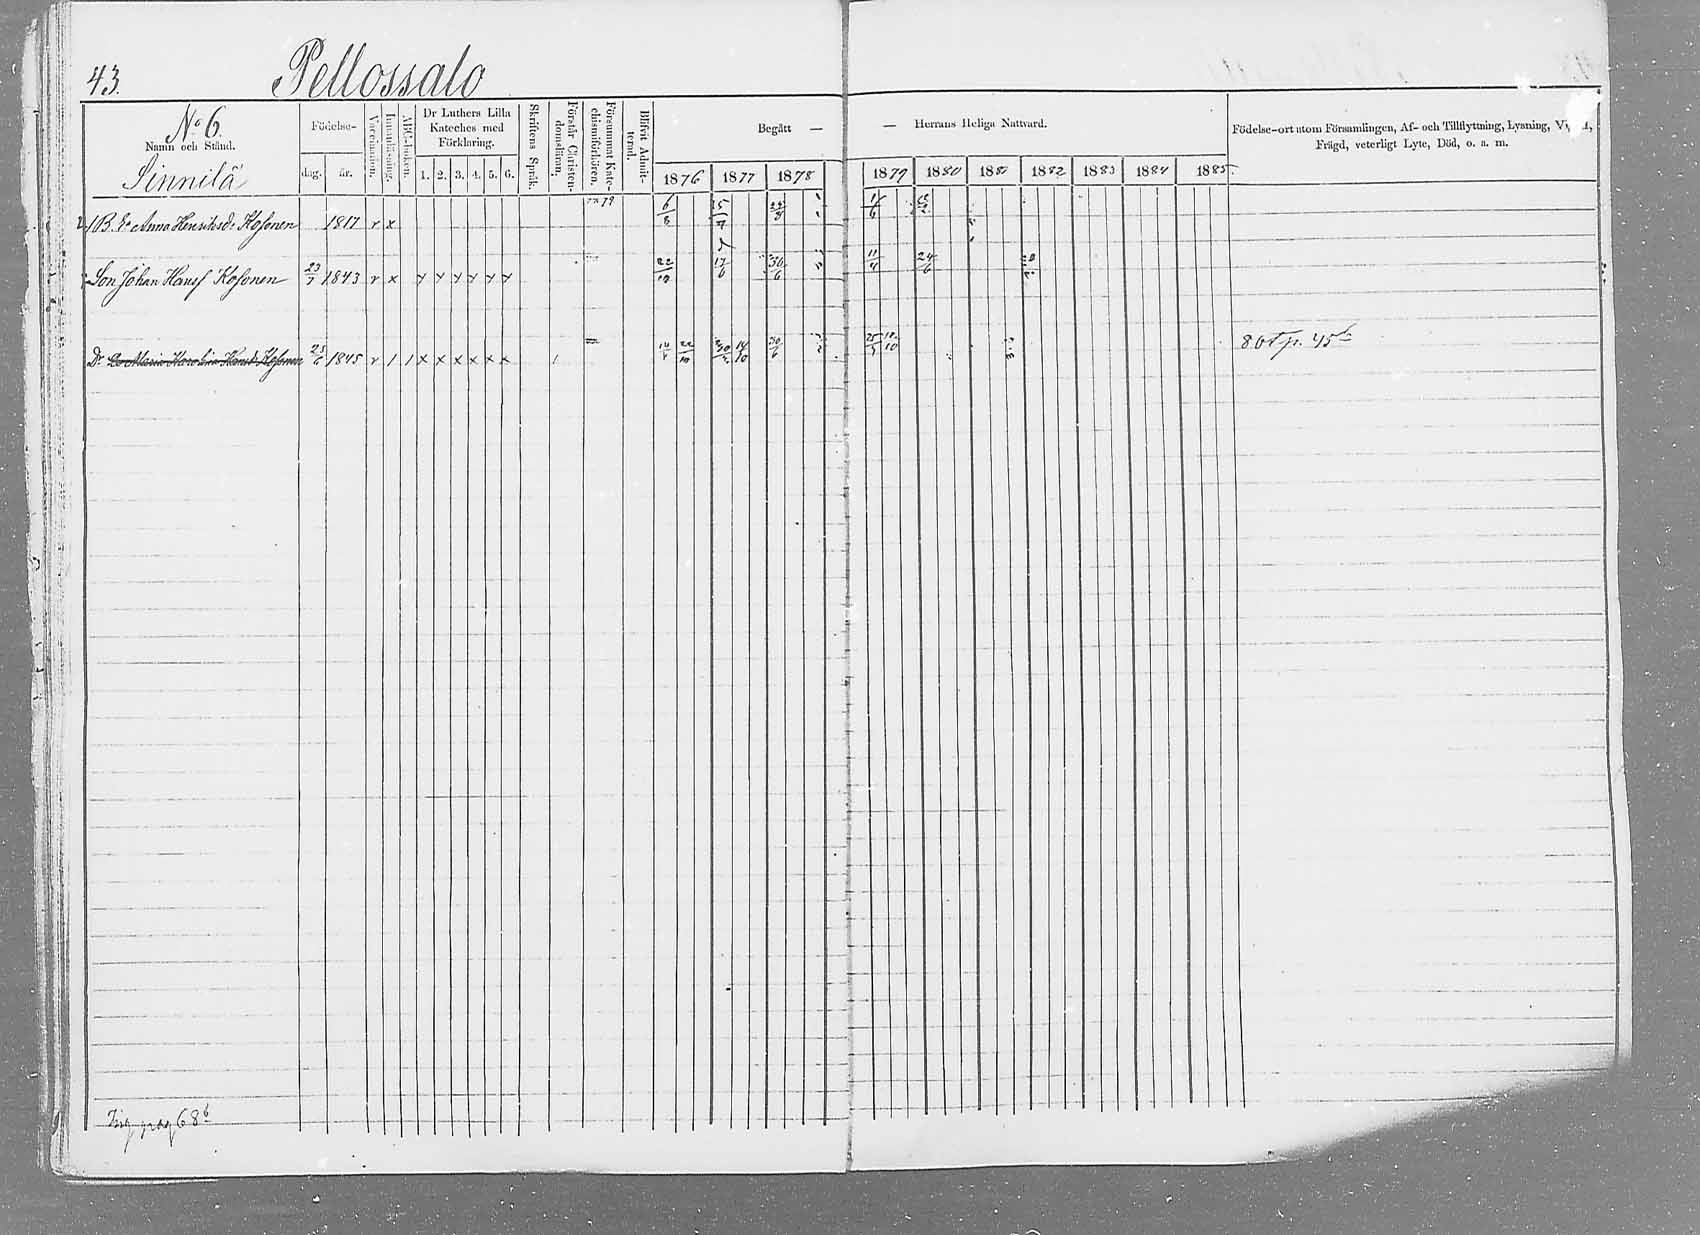 43.
Pellossalo
No 6.
Namn och Stånd.
Sinnilä
Födelse-
dag. år.
Vaccination.
Innanläsning.
ABC-boken.
Dr Luthers Lilla
Kateches med
Förklaring.
1. 2. 3. 4. 5. 6.
Skriftens Språk.
Förstår Christen-
domslären.
Försummat Kate-
chismiförhören.
Blifvit Admit-
terad.
Begått —
— Herrans Heliga Nattvard.
1876 1877 1878
1879 1880 1881 1882 1883 1884 1885.
Födelse-ort utom Församlingen, Af- och Tillflyttning, Lysning, Vigd,
Frägd, veterligt Lyte, Död, o. a. m.
B. Ea Anna Henriksdr Kosonen 1817 v x 6/8
Son Johan Hansf Kosonen 23/7 1843 v x 22/10 17/6 30/6 11/4 24/6
Dr Maria Karolina Hansdr Kosonen 23/6 1845 v 1 1 x x x x x x 1 22/10 14/10 30/6 25/5 12/10 80 t. p. 45b
pag 68b